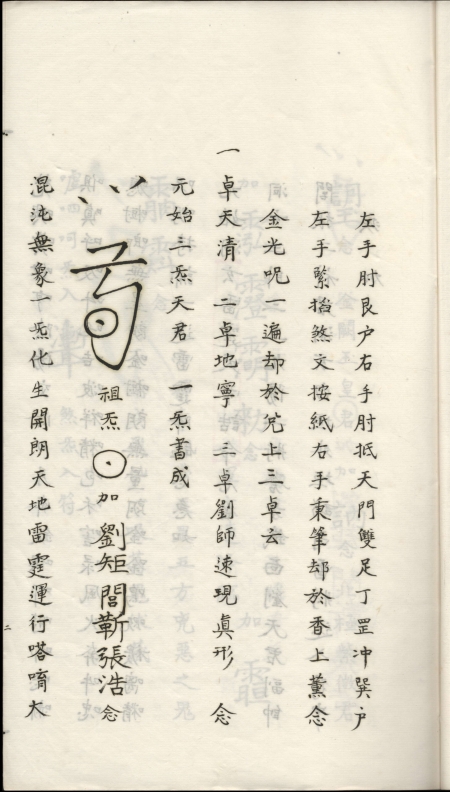 左手肘艮户右手肘抵天門雙足丁罡冲巽户
左手緊掐煞文按紙右手秉筆却於香上薰念
金光呪一遍却於兌上三卓云
一卓天清二卓地寧三卓劉師速現眞形 念
元始三炁天君一炁書成
祖炁 加 劉矩閻靳張浩 念
混沌無象一炁化生開朗天地雷霆運行嗒唷大
二